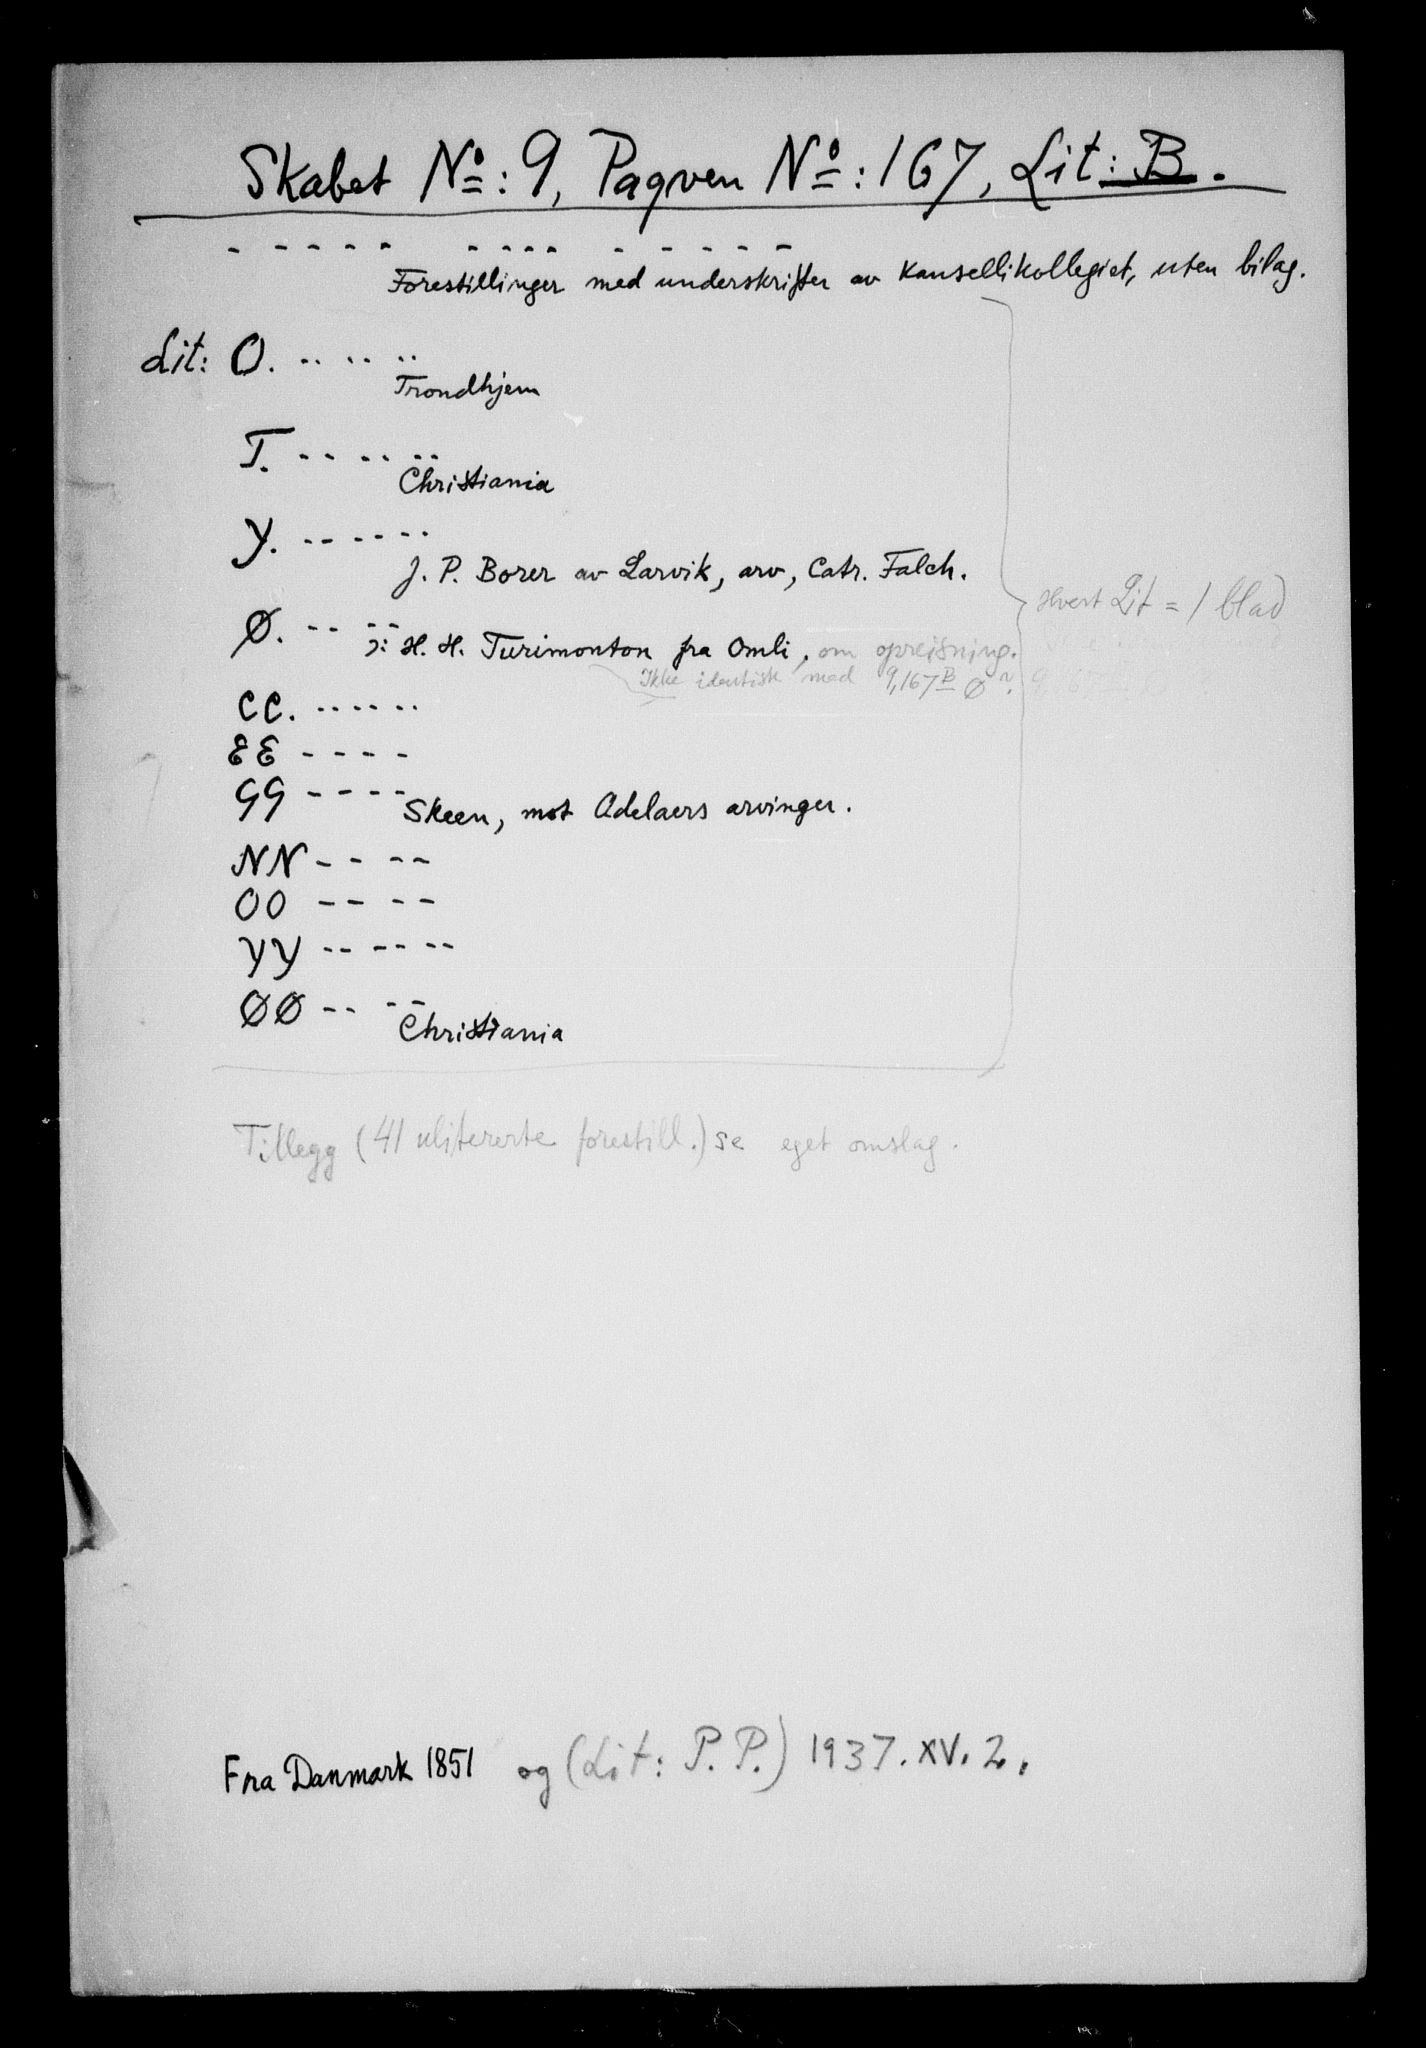 Skabet No: 9, Paqven No: 167, Lit: B.
- - - - - - - - - - - - - -
Forestillinger med underskrifter av kansellikollegiet, uten bilag.
Lit: O. -- -- --
Trondhjem
T. - - - - --
Christiania
Y. -- -- --
J. P. Borer av Larvik, arv, Catr. Falch.
Hvert Lit = 1 blad
Ø. -- --
ɔ: H. H. Turimonton fra Omli, om opreisning.
Ikke identisk med 9,167B Ø?
CC. -- -- --
EE - - - -
GG - - - -
Skeen, mot Adelaers arvinger.
NN - - - -
OO - - - -
YY -- -- --
ØØ -- --
Christiania
Tillegg (41 ulitererte forestill.) se eget omslag.
Fra Danmark 1851 og (Lit: P. P.) 1937. XV. 2.